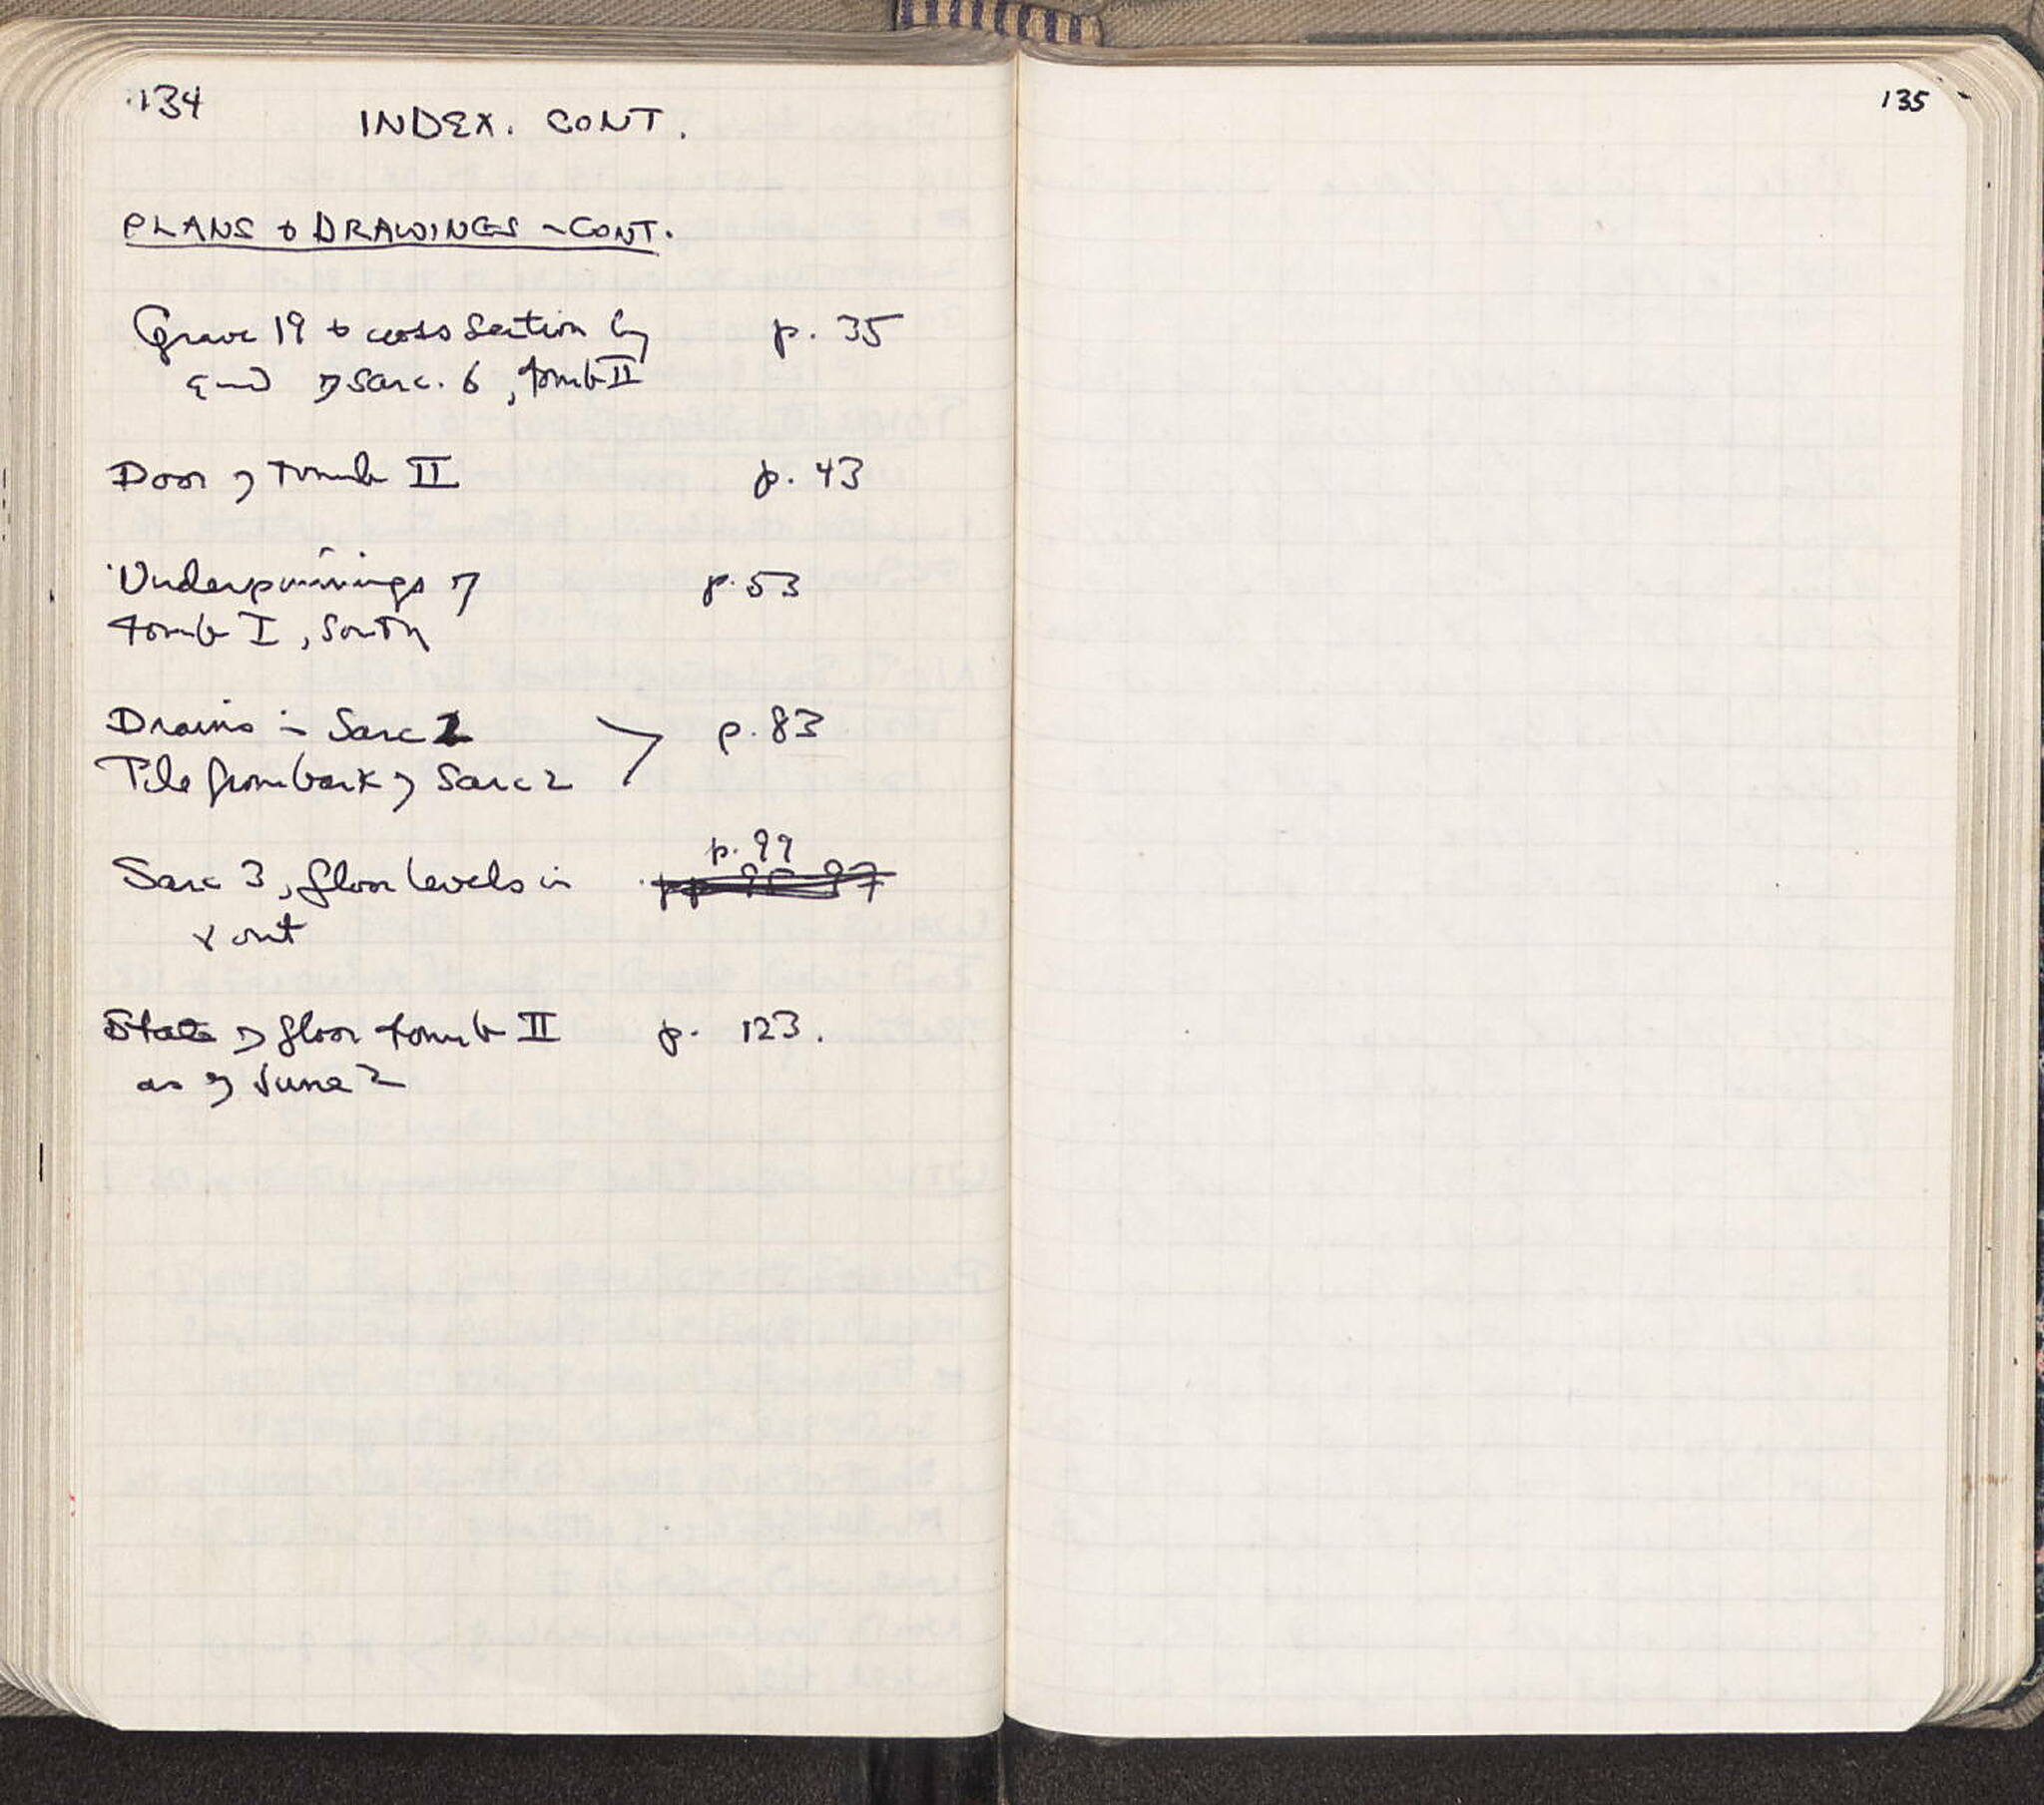 134
INDEX. CONT.
PLANS & DRAWINGS - CONT.
Grave 19 & cross section by p. 35
end of sarc. 6, tomb II
Door of tomb II p. 43
Underpinnings of p. 53
tomb I, South
Drains in Sarc 2 p. 83
Tile from back of Sarc 2
p. 99
Sarc 3, floor levels in
& out
State of floor tomb II p. 123.
as of June 2
135